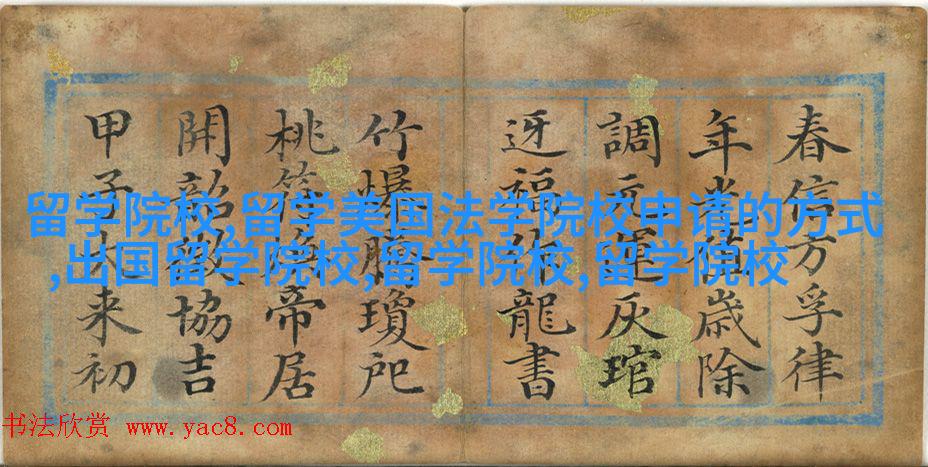 春信方孚律
年光值歲除
調元運灰琯
迓福龍書
竹爆瓊戺
桃符帝居
開韶協吉
甲子來初
留学院校,留学美国法学院校申请的方式
,出国留学院校,留学院校,留学院校
书法欣赏 www.yac8.com